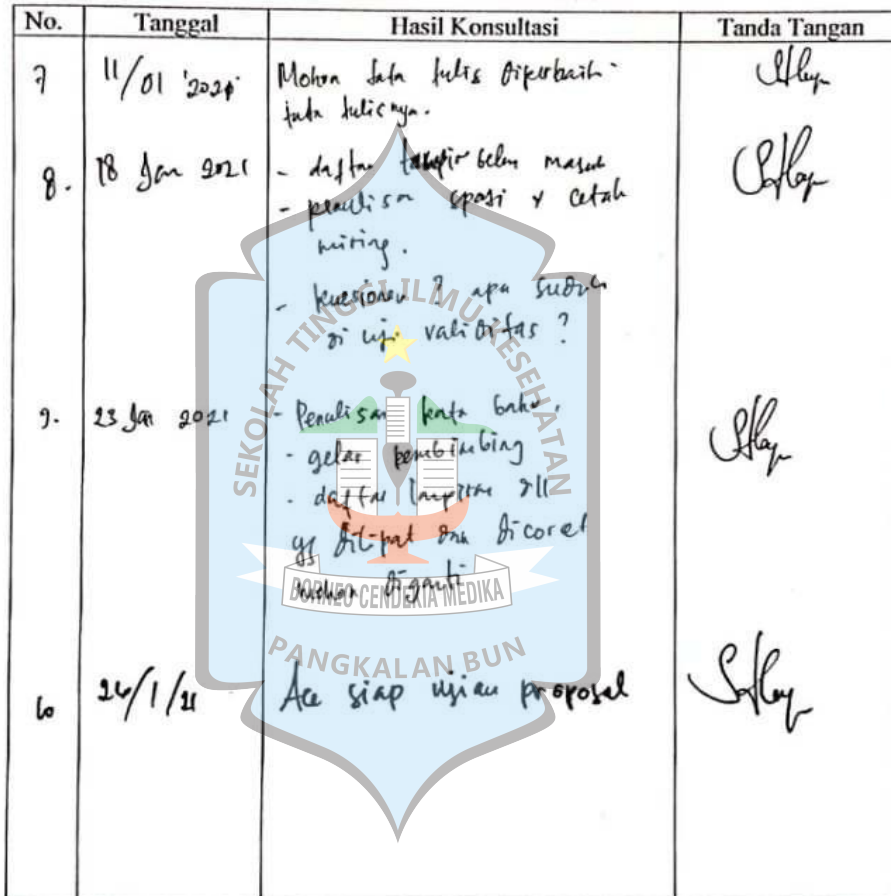 No. Tanggal Hasil Konsultasi Tanda Tangan
7 11/01 '2021 Mohon tata tulis diperbaiki
tata tulisnya.
8. 18 Jan 2021 - daftar belum masuk
- penulisan spasi & cetak
miring.
- kuesioner ? apa sudah
di uji validitas ?
9. 23 Jan 2021 - Penulisan kata baku.
- gelar pembimbing
- daftar lampiran dll
yg dan dicoret
mohon diganti
10 /1/21 Acc siap ujian proposal
SEKOLAH TINGGI ILMU KESEHATAN
BORNEO CENDEKIA MEDIKA
PANGKALAN BUN